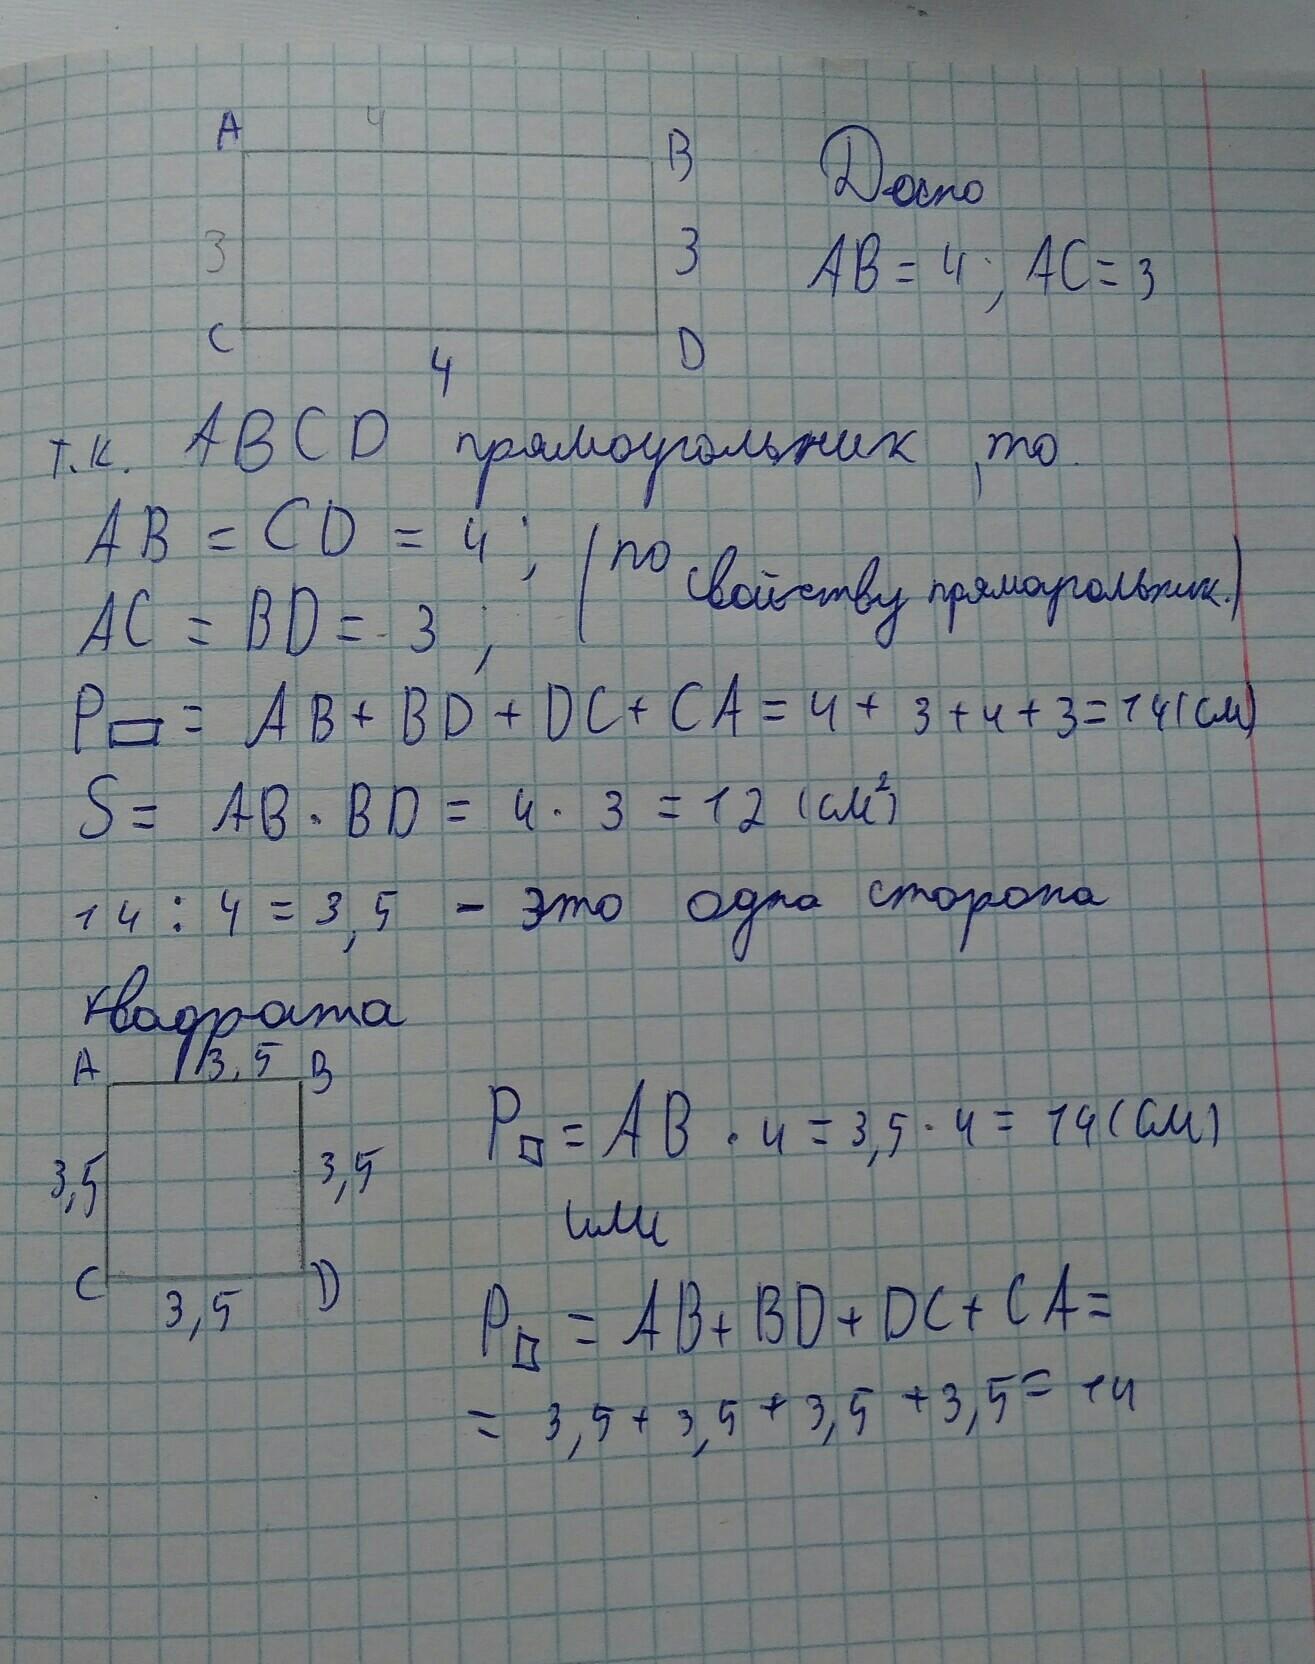 A 4 B
3 3
C 4 D
Дано
AB = 4; AC = 3
т.к. ABCD прямоугольник, то
AB = CD = 4; (по свойству прямоугольник.)
AC = BD = 3;
P▭ = AB + BD + DC + CA = 4 + 3 + 4 + 3 = 14 (см)
S = AB · BD = 4 · 3 = 12 (см²)
14 : 4 = 3,5 - это одна сторона
квадрата
A 3,5 B
3,5 3,5
C 3,5 D
P□ = AB · 4 = 3,5 · 4 = 14 (см)
или
P□ = AB + BD + DC + CA =
= 3,5 + 3,5 + 3,5 + 3,5 = 14